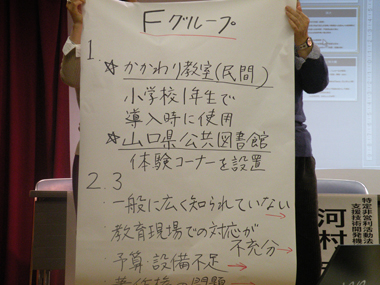 Fグループ
1.
☆かかわり教室(民間)
小学校1年生で
導入時に使用
☆山口県公共図書館
体験コーナーを設置
2.3
・一般に広く知られていない→
・教育現場での対応が
不充分→
・予算・設備不足→
特定非営利活動法
支援技術開発機
河村